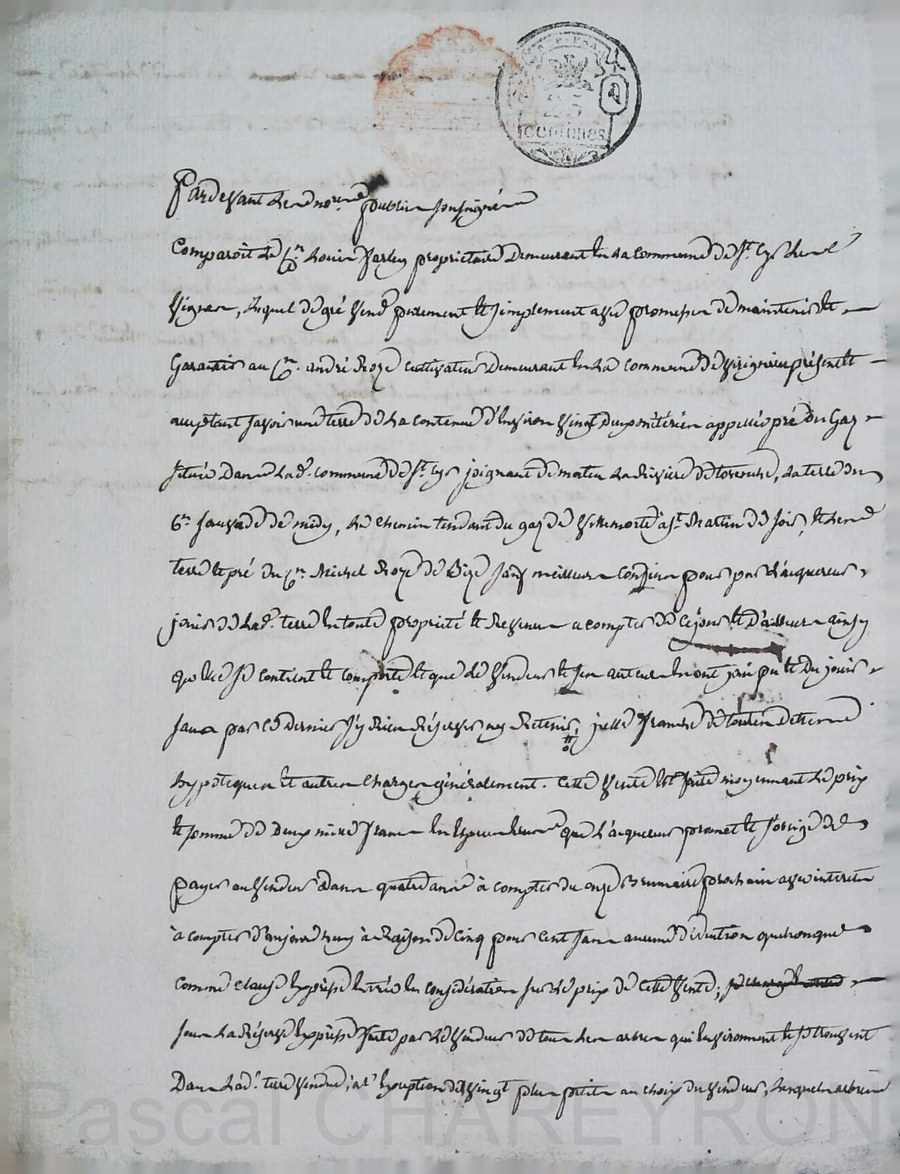 25
centimes
Pardevant le no.re public soussigné
Comparoit le C.en Louis demeurant en la commune de S.t Cyr les
Vignes, lequel de gré vend purement et simplement avec promesse de maintenir et
Garantir au C.en andré Roze Cultivateur demeurant en la commune de Virignieu présent et
acceptant savoir une terre de la contenue d'environ vingt appellée pré du Gaz
située dans lad.e commune de S.t Cyr joignant de matin la rivière de toranche, la terre du
C.en de midy, le chemin tendant du gaz de Villemorte à S.t Martin de soir, et les
terre et pré du C.en Michel Roze de Bize sauf meilleurs Confins pour par l'acquereur
jouir de lad.e terre en toute propriété et Revenu a compter de Cejour et d'ailleurs ainsy
qu'elle se contient et comporte et que le Vendeur et ses auteurs en ont joui pu et du jouir
sans par ce dernier s'y Rien Réserver ny Retenir, franche de toutes dettes
hypoteques et autres Charges généralement. Cette Vente est faite moyennant le prix
et somme de Deux mille francs en que l'acquereur promet et s'oblige de
payer au Vendeur dans quatre années à compter du onze Brumaire prochain avec interets
à compter d'aujourd'huy à Raison de Cinq pour Cent sans aucune quelconque
comme clause Expresse entrée en considération sur le prix de Cette Vente;
sous la Réserve Expresse faite par le Vendeur de tous les arbres qui Environnent et se trouvent
Dans lad.e terre Vendue, à l'Exception de Vingt plus petits au choix du Vendeur, lesquels arbres
Pascal CHAREYRON